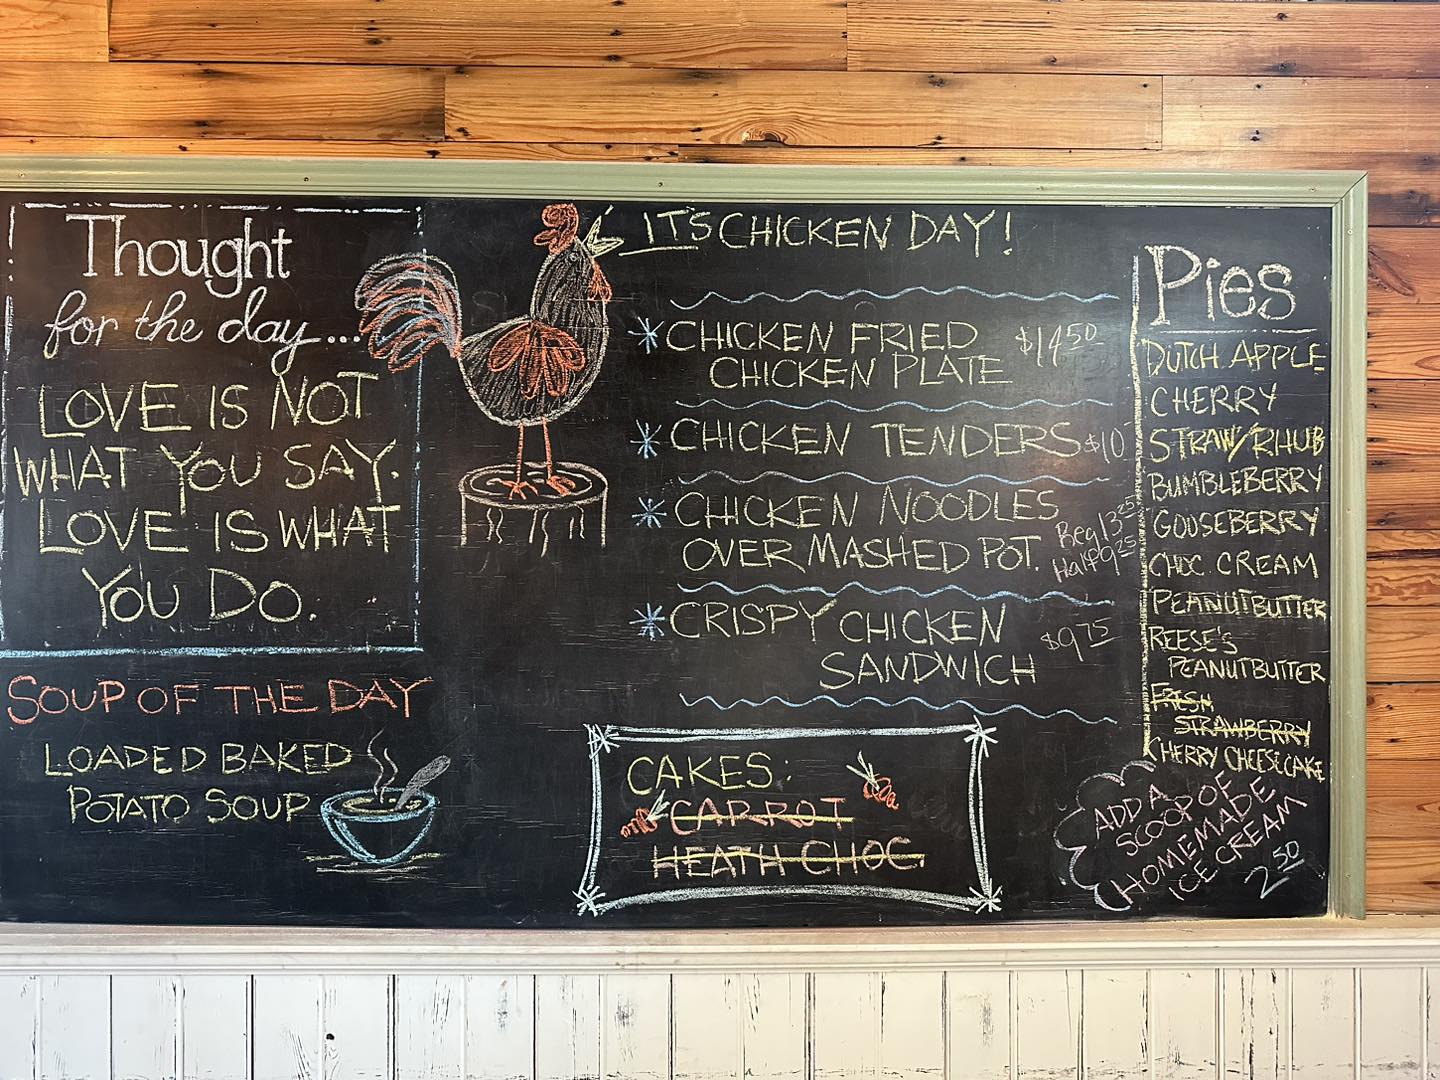 Thought
for the day...
LOVE IS NOT
WHAT YOU SAY.
LOVE IS WHAT
YOU DO.
SOUP OF THE DAY
LOADED BAKED
POTATO SOUP
IT'S CHICKEN DAY!
CHICKEN FRIED $14.50
CHICKEN PLATE
CHICKEN TENDERS $10
CHICKEN NOODLES
OVER MASHED POT.
Reg 13.25
Half $9.25
CRISPY CHICKEN
SANDWICH $9.75
CAKES:
CARROT
HEATH CHOC.
Pies
DUTCH APPLE
CHERRY
STRAW/RHUB
BUMBLEBERRY
GOOSEBERRY
CHOC. CREAM
PEANUTBUTTER
REESE'S
PEANUTBUTTER
FRESH
STRAWBERRY
CHERRY CHEESECAKE
ADD A
SCOOP OF
HOMEMADE
ICE CREAM
2.50